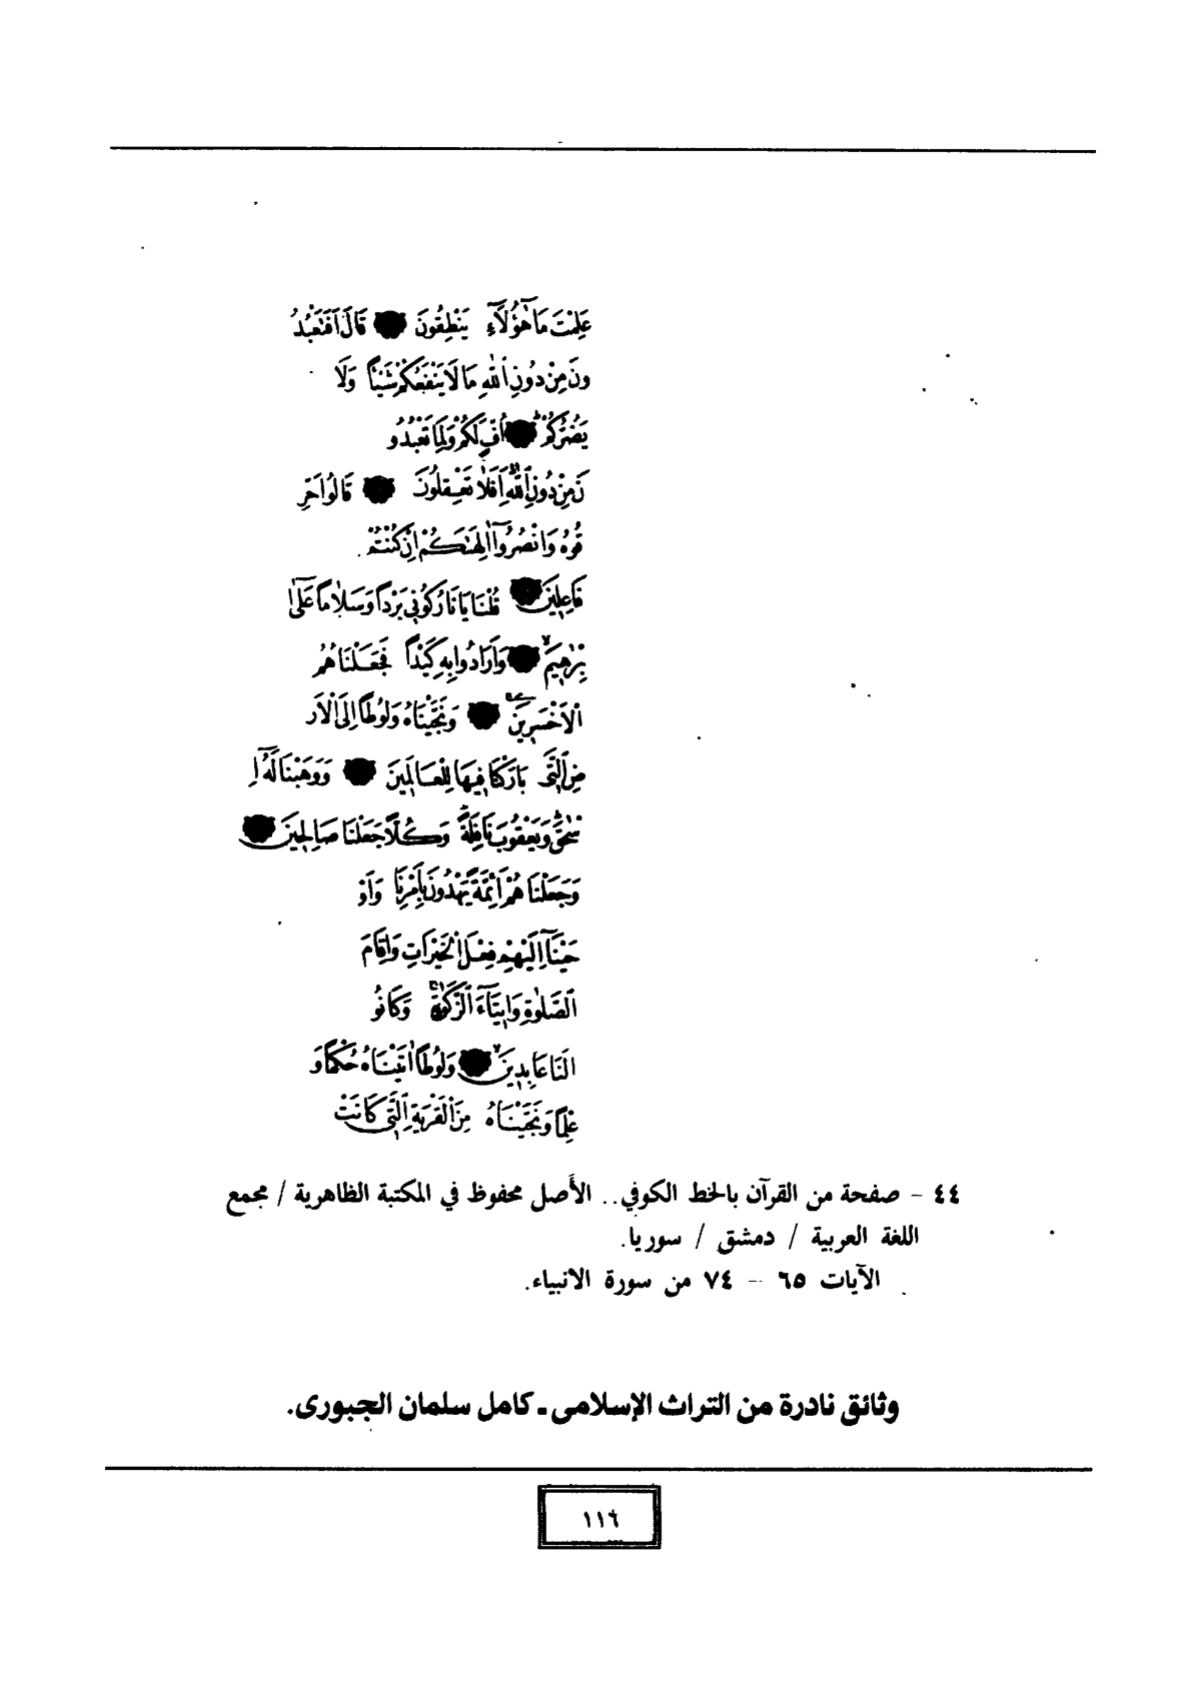 عَلِمْتَ مَا هٰٓؤُلَٓاءِ يَنْطِقُونَ قَالَ اَفَتَعْبُدُ
ونَ مِنْ دُونِ اللّٰهِ مَا لَا يَنْفَعُكُمْ شَيْـًٔا وَلَا
يَضُرُّكُمْ اُفٍّ لَكُمْ وَلِمَا تَعْبُدُو
نَ مِنْ دُونِ اللّٰهِ اَفَلَا تَعْقِلُونَ قَالُوا حَرِّ
قُوهُ وَانْصُرُٓوا اٰلِهَتَكُمْ اِنْ كُنْتُمْ
فَاعِلِينَ قُلْنَا يَا نَارُ كُونِي بَرْدًا وَسَلَامًا عَلٰٓى ا
بْرٰهِيمَ وَاَرَادُوا بِهِ كَيْدًا فَجَعَلْنَاهُمُ
الْاَخْسَرِينَ وَنَجَّيْنَاهُ وَلُوطًا اِلَى الْاَرْ
ضِ الَّتِي بَارَكْنَا فِيهَا لِلْعَالَمِينَ وَوَهَبْنَا لَهُٓ اِ
سْحٰقَ وَيَعْقُوبَ نَافِلَةً وَكُلًّا جَعَلْنَا صَالِحِينَ
وَجَعَلْنَاهُمْ اَئِمَّةً يَهْدُونَ بِاَمْرِنَا وَاَوْ
حَيْنَٓا اِلَيْهِمْ فِعْلَ الْخَيْرَاتِ وَاِقَامَ
الصَّلٰوةِ وَاِيتَٓاءَ الزَّكٰوةِ وَكَانُو
ا لَنَا عَابِدِينَ وَلُوطًا اٰتَيْنَاهُ حُكْمًا وَ
عِلْمًا وَنَجَّيْنَاهُ مِنَ الْقَرْيَةِ الَّتِي كَانَتْ
٤٤ - صفحة من القرآن بالخط الكوفي.. الأصل محفوظ في المكتبة الظاهرية / مجمع
اللغة العربية / دمشق / سوريا.
الآيات ٦٥ - ٧٤ من سورة الانبياء.
وثائق نادرة من التراث الإسلامى ـ كامل سلمان الجبورى.
١١٦